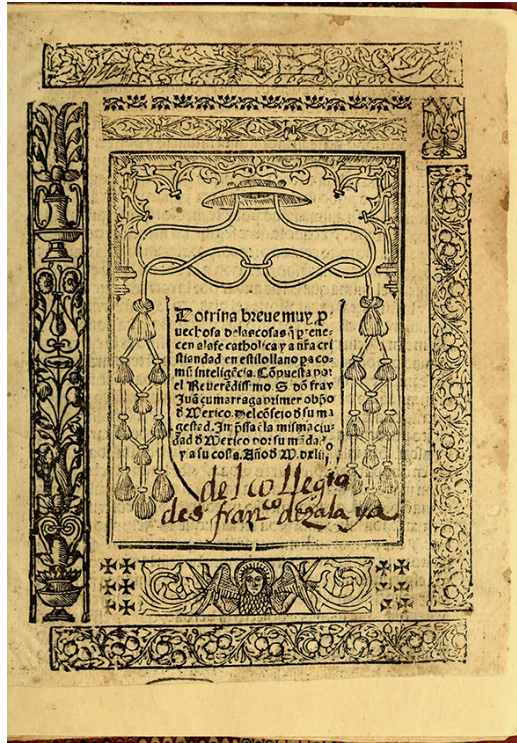 Dotrina breue muy p
uechosa delas cosas q̃ p̲tene-
cen ala fe catholica y a nr̃a cri
stiandad en estilo llano pa co-
mũ inteligẽcia. Cõpuesta por
el Reuerẽdissimo. S. dõ fray
Juã çumarraga primer obp̃o
d̃ Mexico. Del cõsejo d̃ su ma
gestad. Imp̃ssa ẽla misma ciu-
dad d̃ Mexico por su mãdado
y a su costa. Año d̃ M. dxliij
del collegio
de s franco de zalaya